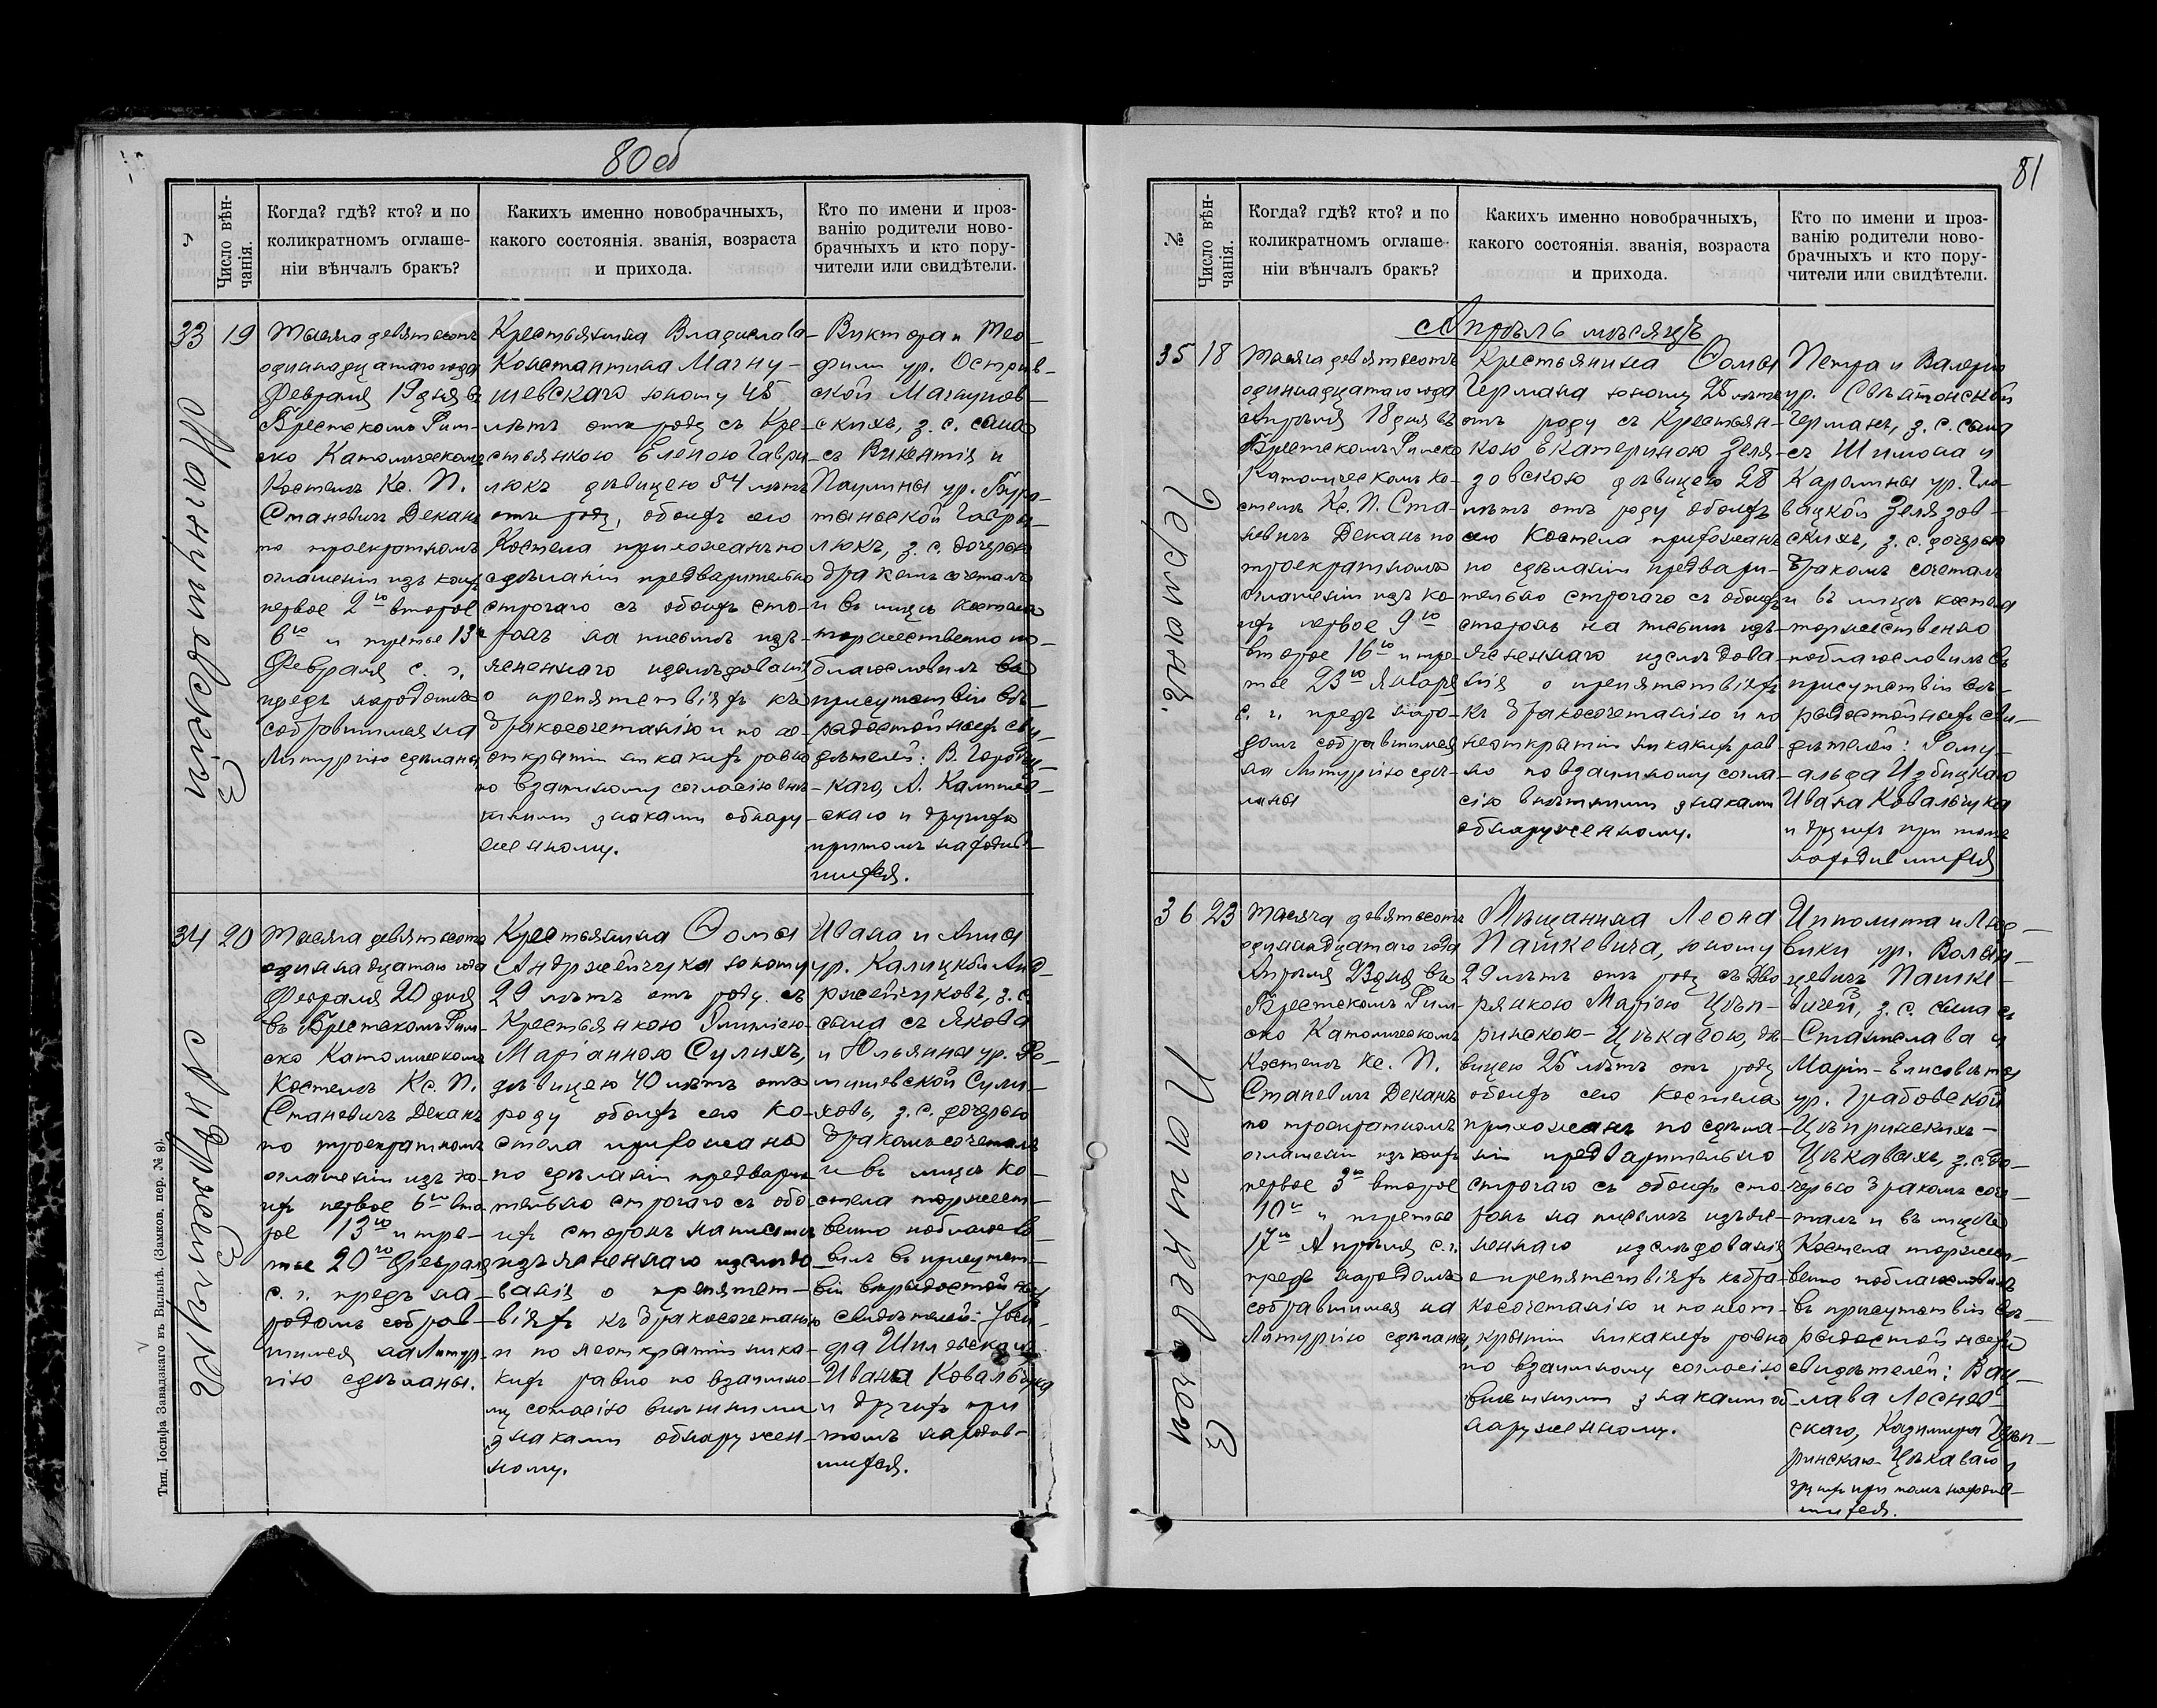 80 об
№
Число вѣн-
чанія.
Когда? гдѣ? кто? и по
коликратномъ оглаше-
ніи вѣнчалъ бракъ?
Какихъ именно новобрачныхъ,
какого состоянія. званія, возраста
и прихода.
Кто по имени и проз-
ванію родители ново-
брачныхъ и кто пору-
чители или свидѣтели.
33
19
Магнушевскій
3
Тысяча девятьсотъ
одинадцатаго года
Февраля 19 дня въ
Брестскомъ Рим-
ско Католическомъ
Костелѣ Кс. П.
Станевичъ Деканъ
по троекратномъ
оглашеніи изъ коихъ
первое 2го второе
6го и третье 13го
Февраля с. г.
предъ народомъ
собравшимся на
Литургію сдѣланы
Крестьянина Владислава-
Константина Магну-
шевскаго юношу 45
лѣтъ отъ роду съ Кре-
стьянкою Еленою Гаври-
люкъ дѣвицею 34 лѣтъ
отъ роду, обоихъ сего
Костела прихожанъ по
сдѣланіи предварительно
строгаго съ обоихъ сто-
ронъ на письмѣ изъ-
ясненнаго изслѣдованія
о препятствіяхъ къ
бракосочетанію и по не-
открытіи никакихъ равно
по взаимному согласію внѣ-
шними знаками обнару-
женному.
Виктора и Тео-
фили ур. Остров-
ской Магнушев-
скихъ, з. с. сына
съ Викентія и
Паулины ур.
Гаври-
люкъ, з. с. дочерью
бракомъ сочеталъ
и въ лицѣ костела
торжественно по-
благословилъ въ
присутствіи вѣ-
радостойныхъ сви-
дѣтелей: В.
каго, А.
скаго и другихъ
притомъ находив-
шихся.
34
20
Андржейчукъ
3
Тысяча девятьсотъ
одинадцатаго года
Февраля 20 дня
въ Брестскомъ Рим-
ско Католическомъ
Костелѣ Кс. П.
Станевичъ Деканъ
по троекратномъ
оглашеніи изъ ко-
ихъ первое 6го вто
рое 13го и тре-
тье 20го Февраля
с. г. предъ на-
родомъ собрав-
шимся на Литур-
гію сдѣланы.
Крестьянина Ѳомы
Андржейчука юношу
29 лѣтъ отъ роду съ
Крестьянкою Эмиліею-
Маріанною Сулихъ,
дѣвицею 40 лѣтъ отъ
роду обоихъ сего Ко-
стела прихожанъ
по сдѣланіи предвари-
тельно строгаго съ обо-
ихъ сторонъ на письмѣ
изъясненнаго изслѣдо-
ванія о препятст-
віяхъ къ бракосочетанію
и по неоткрытіи ника-
кихъ равно по взаимно-
му согласію внѣшними
знаками обнаружен-
ному.
Ивана и Анны
ур. Калицкой Анд-
ржейчуковъ, з. с.
сына съ Якова
и Юльяны ур.
Сули-
ховъ, з. с. дочерью
бракомъ сочеталъ
и въ лицѣ ко-
стела торжест-
венно поблагосло-
вилъ въ присутст-
віи вѣрадостойныхъ
свидѣтелей:
Ивана Ковальчука
и другихъ при
томъ находив-
шихся.
Тип. Іосифа Завадзкаго въ Вильнѣ. (Замков. пер. № 9).
81
№
Число вѣн-
чанія.
Когда? гдѣ? кто? и по
коликратномъ оглаше-
ніи вѣнчалъ бракъ?
Какихъ именно новобрачныхъ,
какого состоянія. званія, возраста
и прихода.
Кто по имени и проз-
ванію родители ново-
брачныхъ и кто пору-
чители или свидѣтели.
Апрѣль мѣсяцъ
35
18
Германъ.
Тысяча девятьсотъ
одинадцатаго года
Апрѣля 18 дня въ
Брестскомъ Римско
Католическомъ Ко-
стелѣ Кс. П. Ста-
невичъ Деканъ по
троекратномъ
оглашеніи изъ ко-
ихъ первое 9го
второе 16го и тре-
тье 23го Января
с. г. предъ наро-
домъ собравшимся
на Литургію сдѣ-
ланы
Крестьянина Ѳомы
Германа юношу 25 лѣтъ
отъ роду съ Крестьян-
кою Екатериною Зеля-
зовскою дѣвицею 28
лѣтъ отъ роду обоихъ
сего Костела прихожанъ
по сдѣланіи предвари-
тельно строгаго съ обоихъ
сторонъ на письмѣ изъ-
ясненнаго изслѣдова-
нія о препятствіяхъ
къ бракосочетанію и по
неоткрытіи никакихъ рав-
но по взаимному согла-
сію внѣшними знаками
обнаруженному.
Петра и Валеріи
ур.
Германъ, з. с. сына
съ Шимона и
Каролины ур. Гло-
вацкой Зелязов-
скихъ, з. с. дочерью
бракомъ сочеталъ
и въ лицѣ костела
торжественно
поблагословилъ въ
присутствіи вѣ-
радостойныхъ сви-
дѣтелей: Рому-
альда Избицкаго
Ивана Ковальчука
и другихъ при томъ
находившихся
36
23
Пашкевичъ
3
Тысяча девятьсотъ
одинадцатаго года
Апрѣля 23 дня въ
Брестскомъ Рим-
ско Католическомъ
Костелѣ Кс. П.
Станевичъ Деканъ
по троекратномъ
оглашеніи изъ коихъ
первое 3го второе
10го и третье
17го Апрѣля с. г.
предъ народомъ
собравшимся на
Литургію сдѣланы,
Мѣщанина Леона
Пашкевича, юношу
29 лѣтъ отъ роду съ Дво-
рянкою Маріею Цѣп-
ринскою-Цѣкавою, дѣ-
вицею 25 лѣтъ отъ роду
обоихъ сего Костела
прихожанъ по сдѣла-
ніи предварительно
строгаго съ обоихъ сто-
ронъ на письмѣ изъяс-
неннаго изслѣдованія
о препятствіяхъ къ бра-
косочетанію и по неот-
крытіи никакихъ равно
по взаимному согласію
внѣшними знаками об-
наруженному.
Ипполита и Люд-
вики ур. Волын-
цевичъ Пашке-
вичей, з. с. сына съ
Станислава и
Маріи-Елисаветы
ур. Грабовской
Цѣпринскихъ-
Цѣкавыхъ, з. с. до-
черью бракомъ соче-
талъ и въ лицѣ
Костела торжест-
венно поблагословилъ
въ присутствіи вѣ-
радостойныхъ
свидѣтелей: Вац-
лава Леснев-
скаго, Казимира Цѣп-
ринскаго-Цѣкаваго и
другихъ при томъ находив-
шихся.